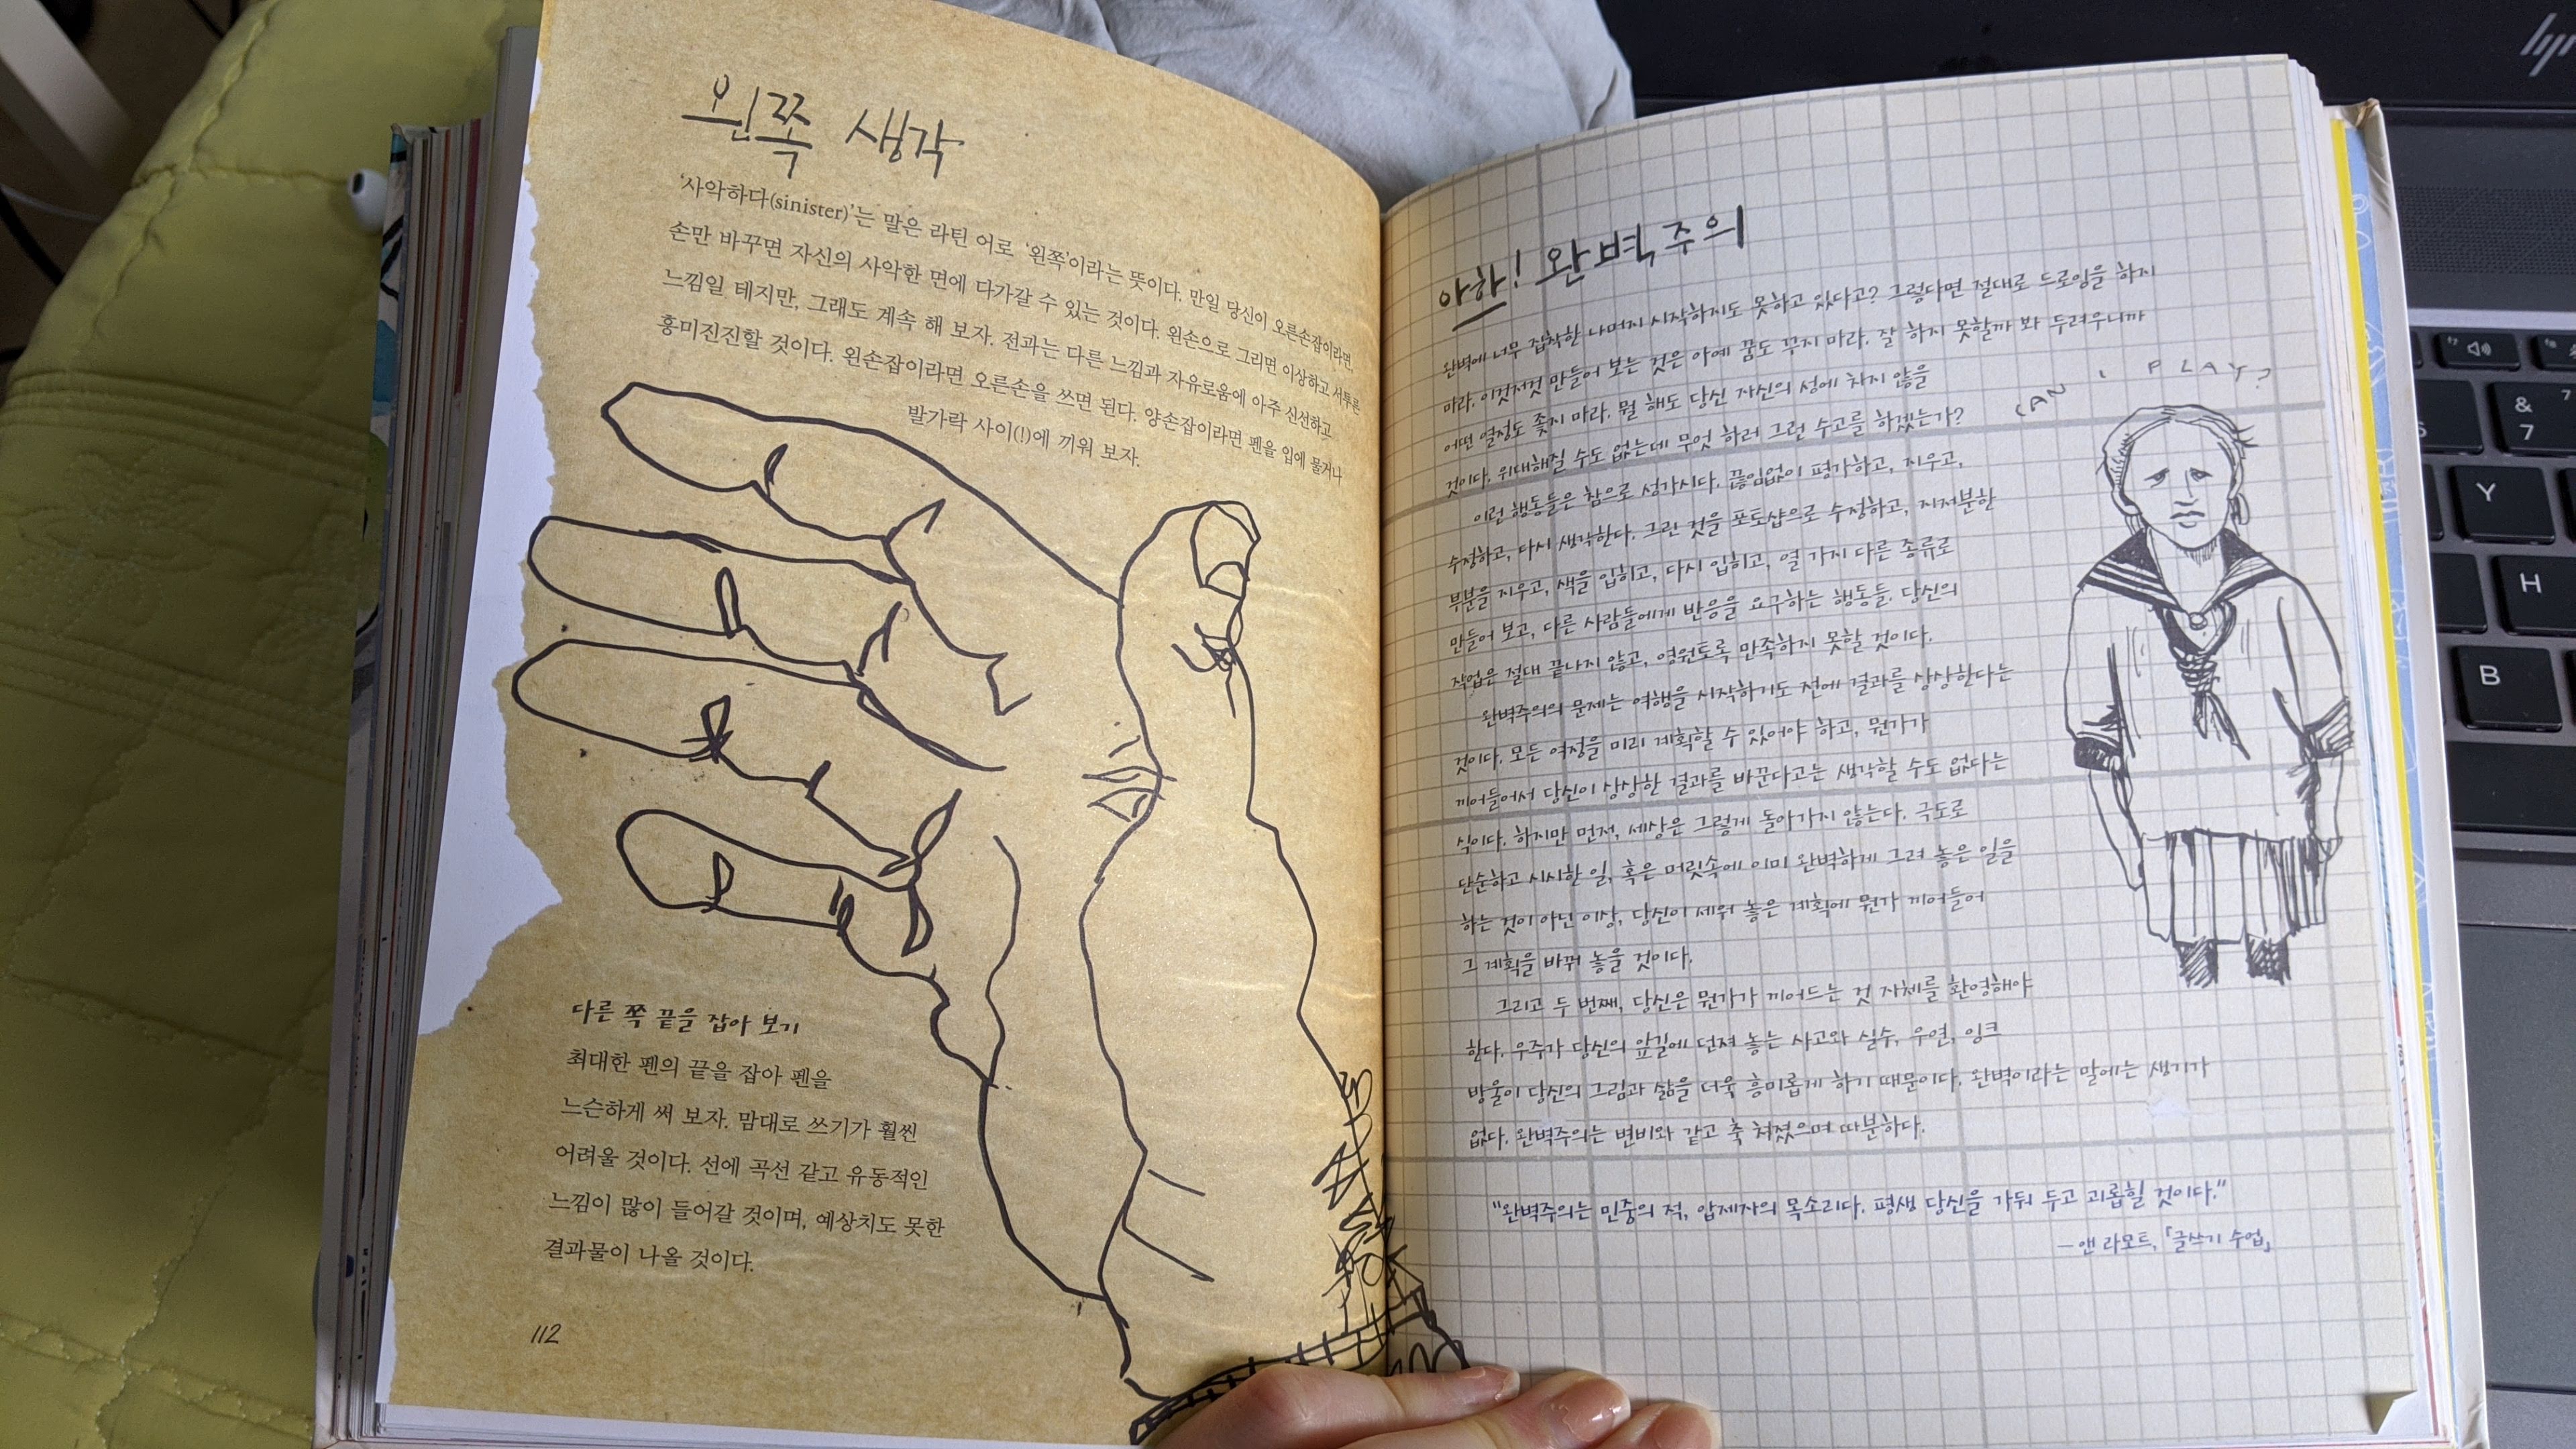 왼쪽 생각
'사악하다(sinister)'는 말은 라틴 어로 '왼쪽'이라는 뜻이다. 만일 당신이 오른손잡이라면,
손만 바꾸면 자신의 사악한 면에 다가갈 수 있는 것이다. 왼손으로 그리면 이상하고 서투른
느낌일 테지만, 그래도 계속 해 보자. 전과는 다른 느낌과 자유로움에 아주 신선하고
흥미진진할 것이다. 왼손잡이라면 오른손을 쓰면 된다. 양손잡이라면 펜을 입에 물거나
발가락 사이(!)에 끼워 보자.
다른 쪽 끝을 잡아 보기
최대한 펜의 끝을 잡아 펜을
느슨하게 써 보자. 맘대로 쓰기가 훨씬
어려울 것이다. 선에 곡선 같고 유동적인
느낌이 많이 들어갈 것이며, 예상치도 못한
결과물이 나올 것이다.
112
아하! 완벽주의
완벽에 너무 집착한 나머지 시작하지도 못하고 있다고? 그렇다면 절대로 드로잉을 하지
마라. 이것저것 만들어 보는 것은 아예 꿈도 꾸지 마라. 잘 하지 못할까 봐 두려우니까
어떤 열정도 좇지 마라. 뭘 해도 당신 자신의 성에 차지 않을
것이다. 위대해질 수도 없는데 무엇 하러 그런 수고를 하겠는가?
이런 행동들은 참으로 성가시다. 끊임없이 평가하고, 지우고,
수정하고, 다시 생각한다. 그린 것을 포토샵으로 수정하고, 지저분한
부분을 지우고, 색을 입히고, 다시 입히고, 열 가지 다른 종류로
만들어 보고, 다른 사람들에게 반응을 요구하는 행동들. 당신의
작업은 절대 끝나지 않고, 영원토록 만족하지 못할 것이다.
완벽주의의 문제는 여행을 시작하기도 전에 결과를 상상한다는
것이다. 모든 여정을 미리 계획할 수 있어야 하고, 뭔가가
끼어들어서 당신이 상상한 결과를 바꾼다고는 생각할 수도 없다는
식이다. 하지만 먼저, 세상은 그렇게 돌아가지 않는다. 극도로
단순하고 시시한 일, 혹은 머릿속에 이미 완벽하게 그려 놓은 일을
하는 것이 아닌 이상, 당신이 세워 놓은 계획에 뭔가 끼어들어
그 계획을 바꿔 놓을 것이다.
그리고 두 번째, 당신은 뭔가가 끼어드는 것 자체를 환영해야
한다. 우주가 당신의 앞길에 던져 놓는 사고와 실수, 우연, 잉크
방울이 당신의 그림과 삶을 더욱 흥미롭게 하기 때문이다. 완벽이라는 말에는 생기가
없다. 완벽주의는 변비와 같고 축 쳐졌으며 따분하다.
"완벽주의는 민중의 적, 압제자의 목소리다. 평생 당신을 가둬 두고 괴롭힐 것이다."
— 앤 라모트, 「글쓰기 수업」
CAN I PLAY?
hp
&
7
Y
H
B